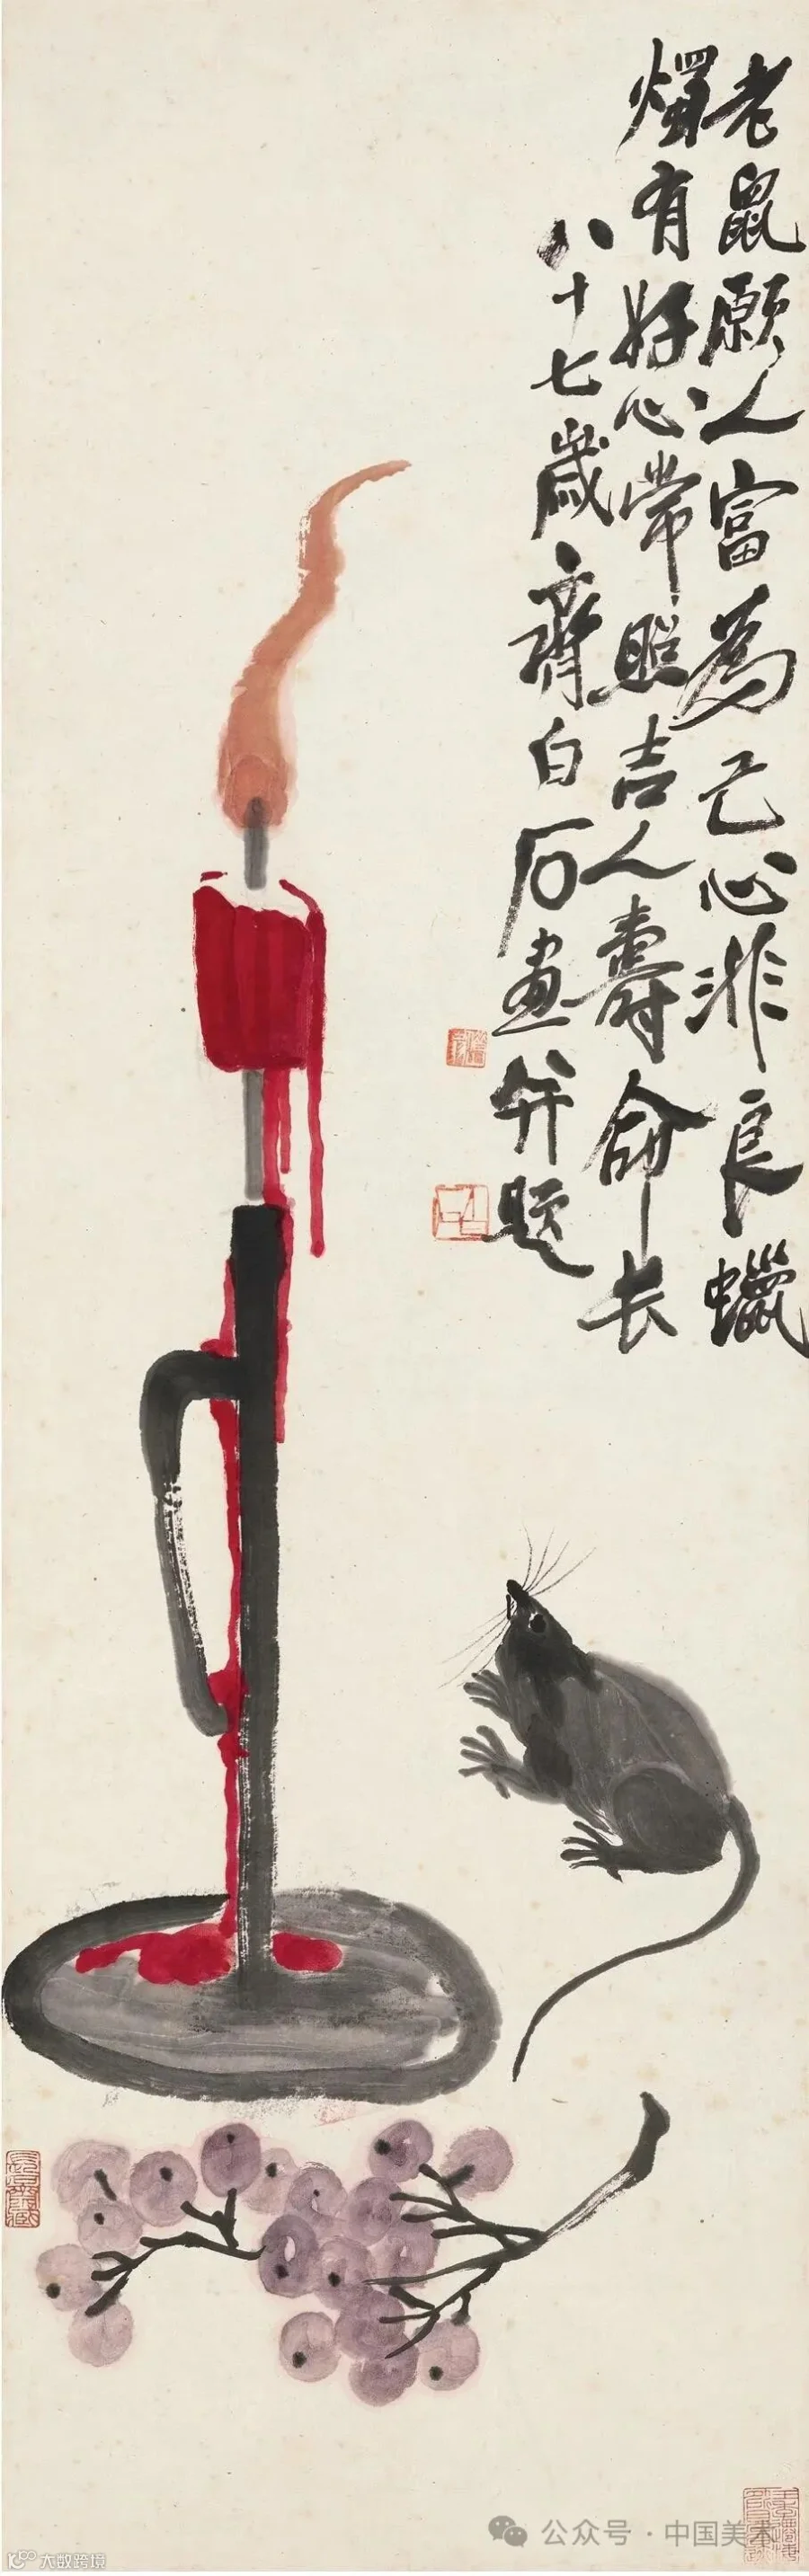 老鼠願人富為己心非良蠟
燭有好心常照吉人壽命长
八十七歲齊白石畫并題
公众号·中国美术
大数跨境